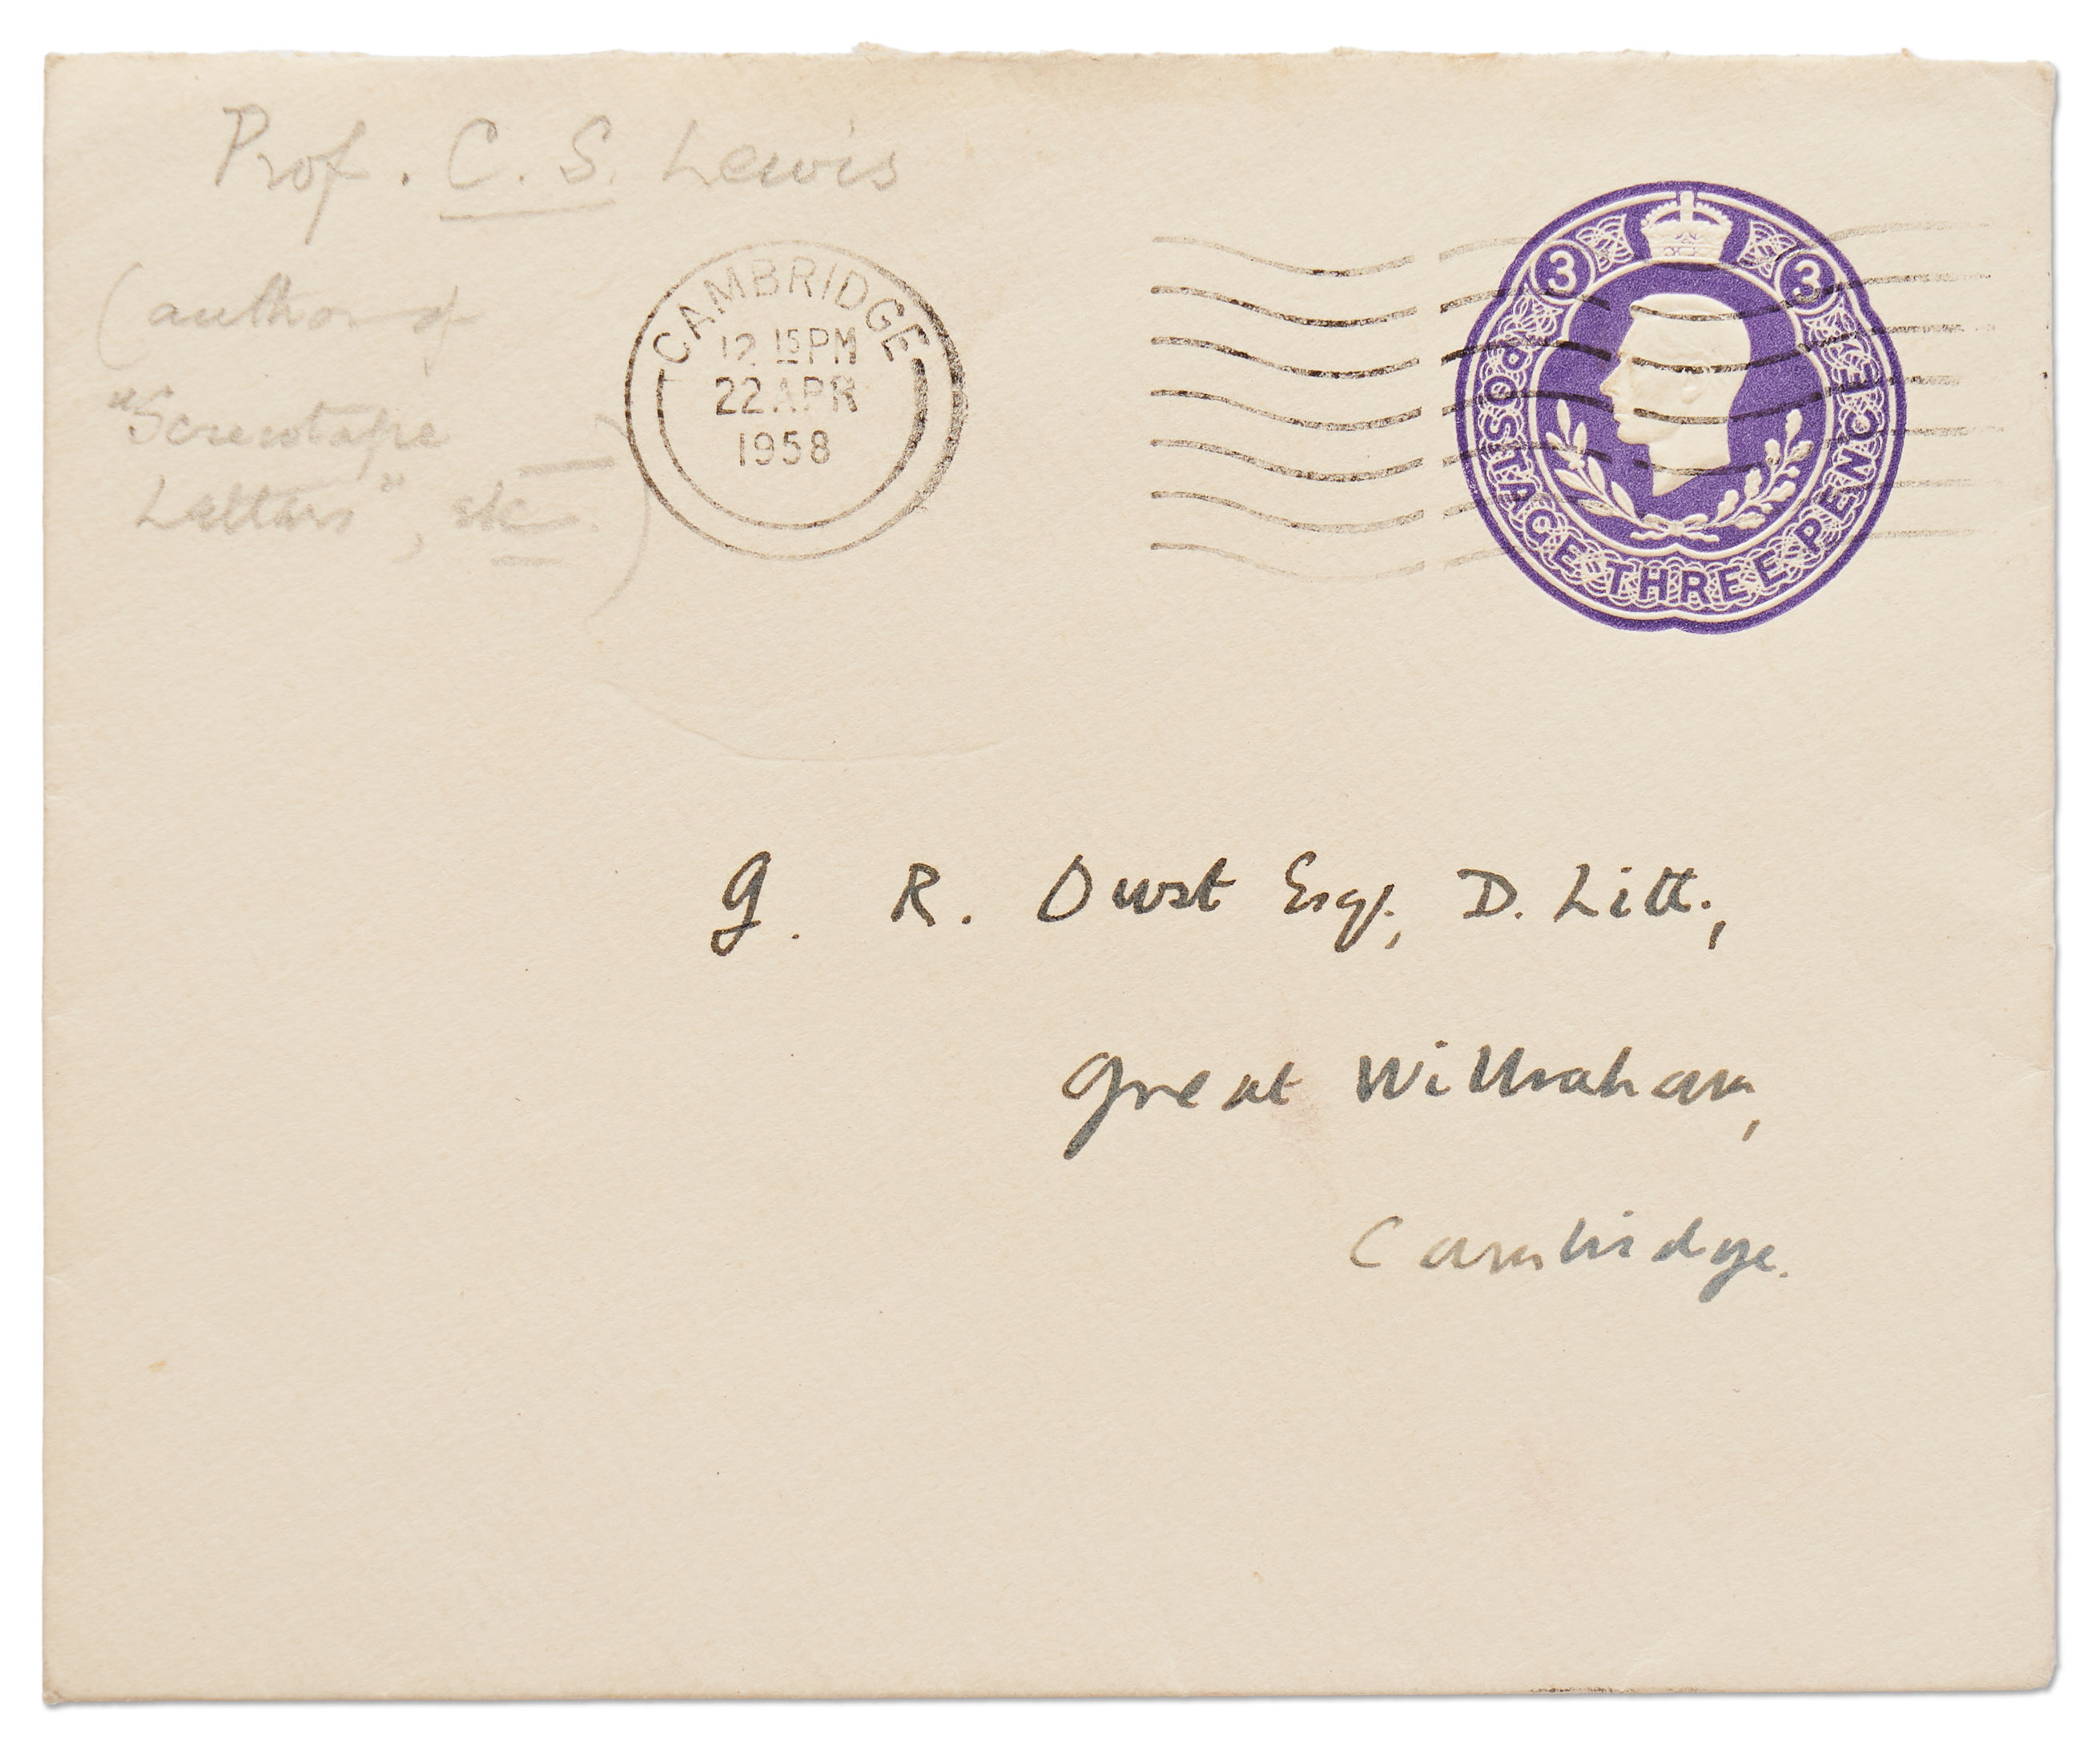 Prof. C. S. Lewis
(author of
"Screwtape
Letters", etc.)
CAMBRIDGE
12 15 PM
22 APR
1958
3 3
POSTAGE THREE PENCE
G. R. Owst Esq., D. Litt.,
Great Wilbraham,
Cambridge.